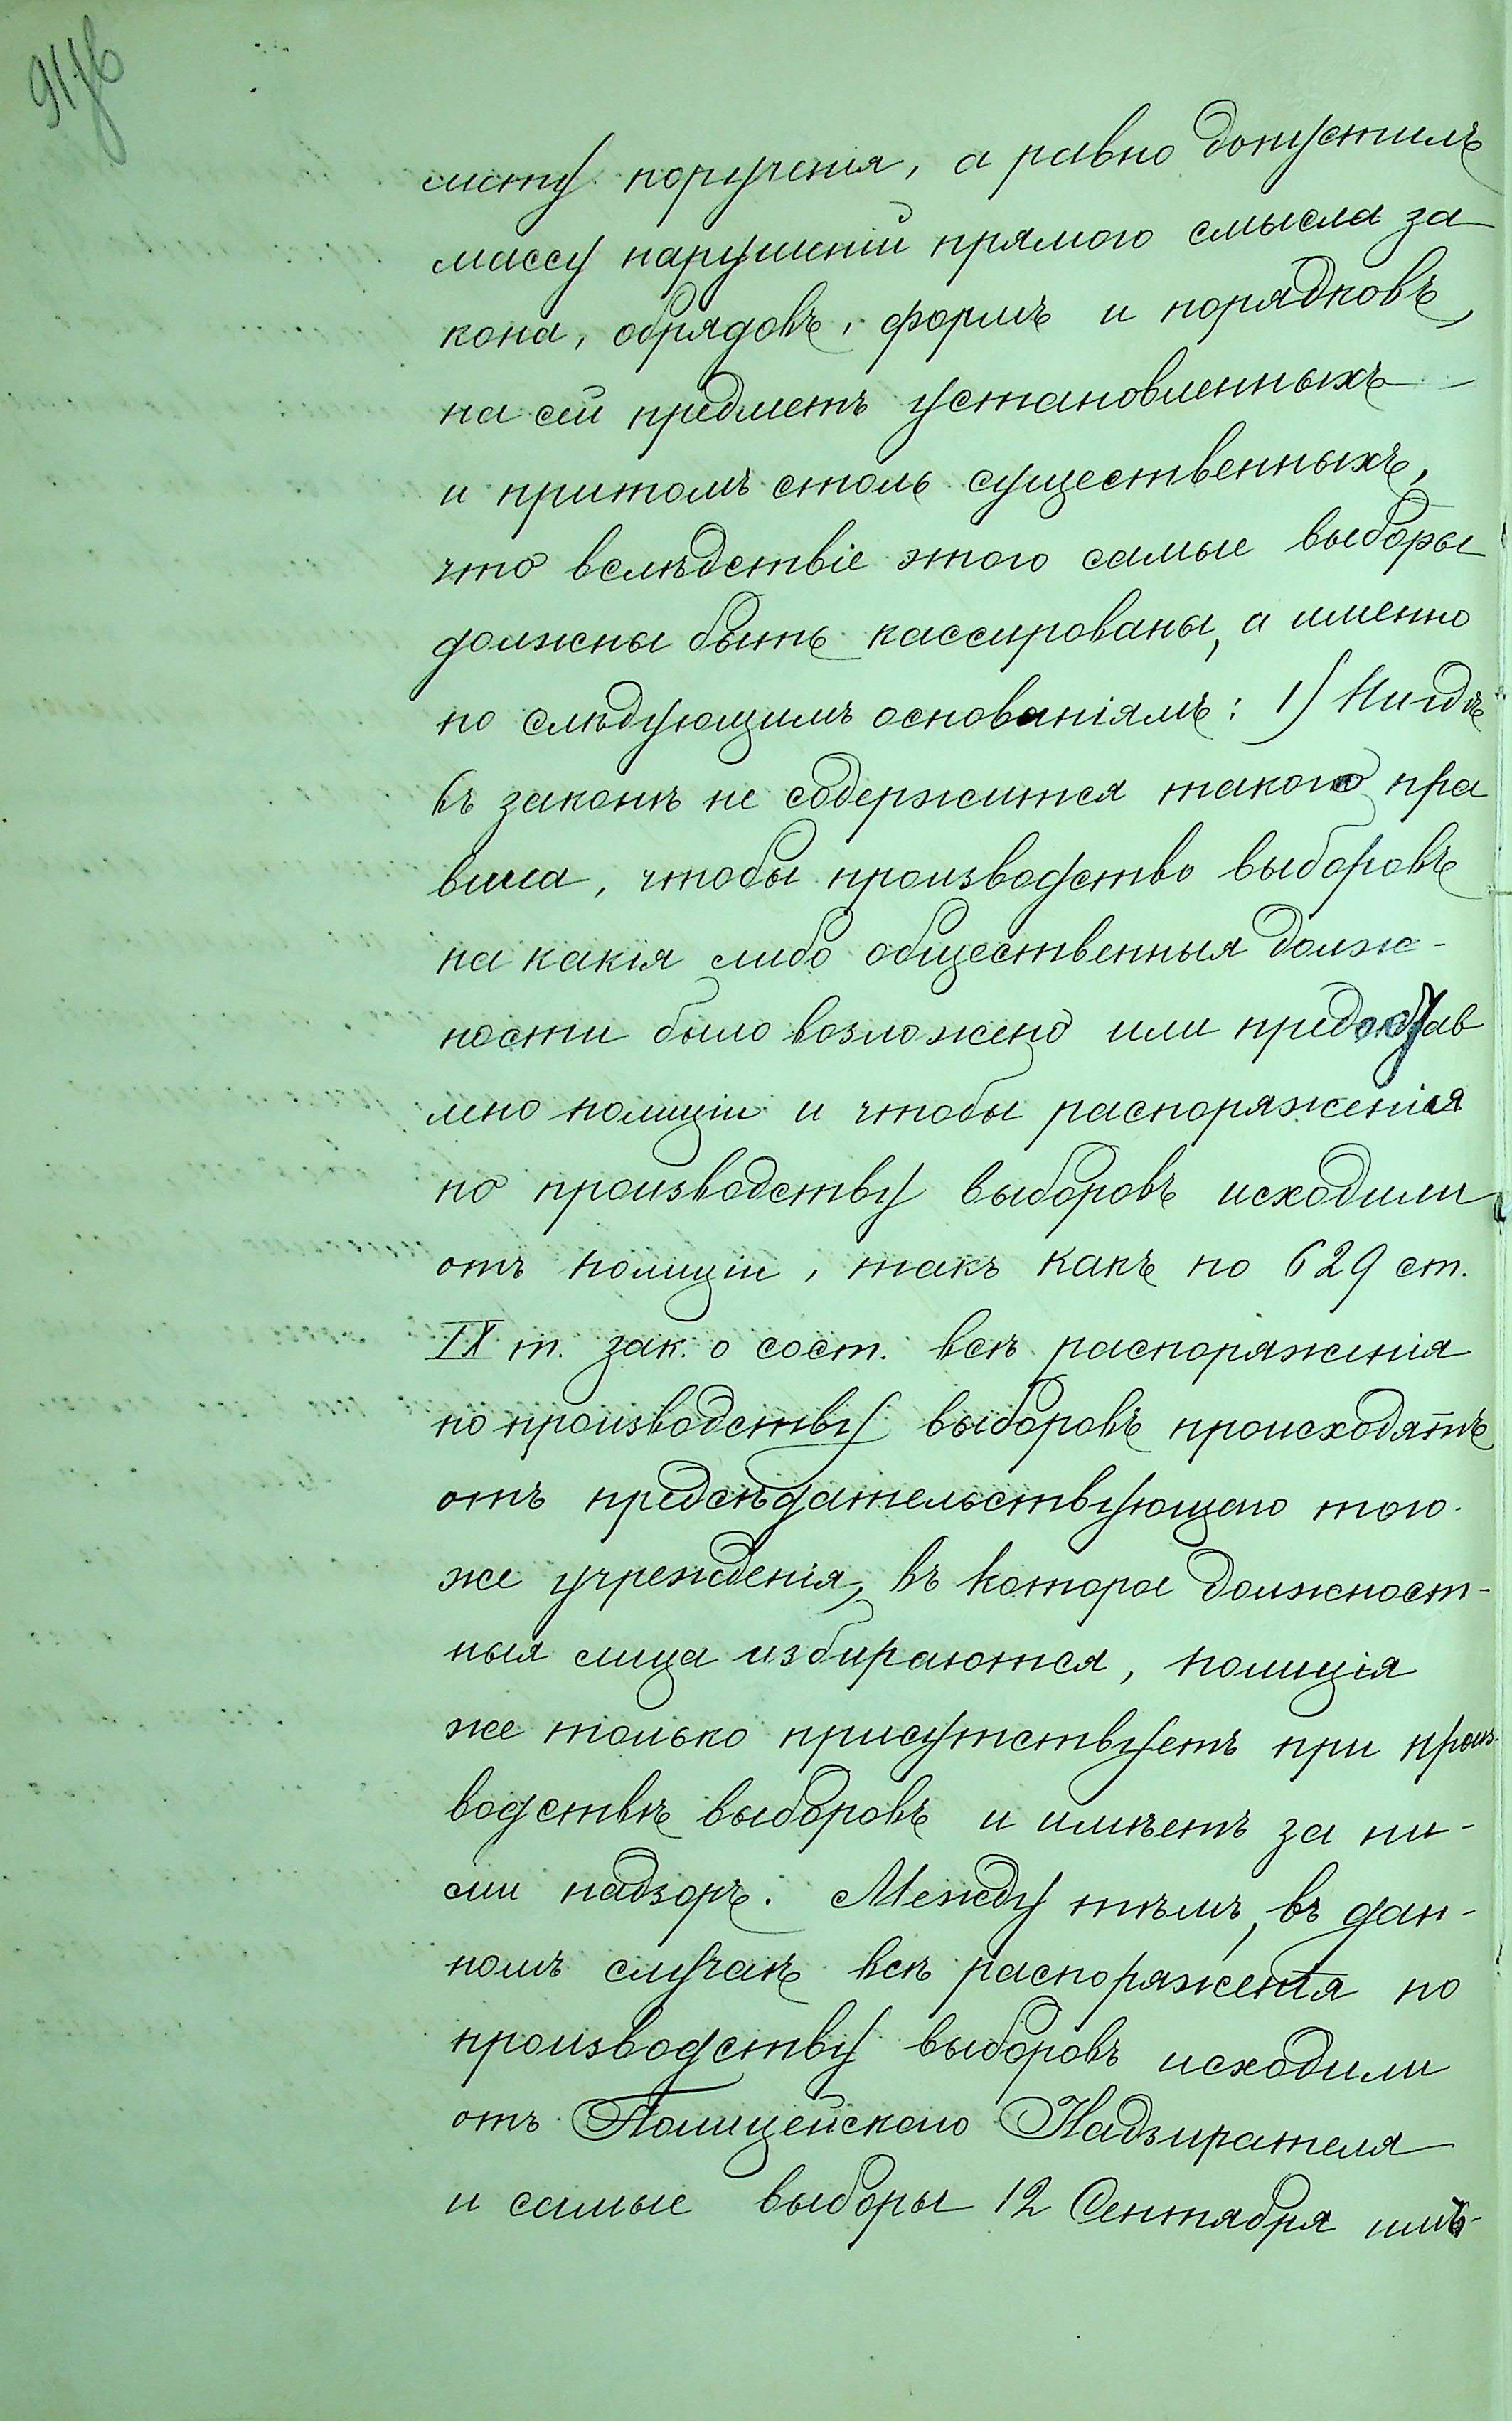 смту порученія, а равно допустилъ
массу нарушеній прямого смысла за
кона, обрядовъ, формъ и порядковъ,
на сей предметъ установленныхъ
и притомъ столь существенныхъ,
что вслѣдствіе этого самые выборы
должны быть кассированы, а именно
по слѣдующимъ основаніямъ: 1) Нигдѣ
въ законѣ не содержится такого пра
вила, чтобы производство выборовъ
на какія либо общественныя долж-
ности было возложено или предостав
лено полиціи и чтобы распоряженія
по производству выборовъ исходили
отъ полиціи, такъ какъ по 629 ст.
IX т. зак. о сост. всѣ распоряженія
по производству выборовъ происходятъ
отъ предсѣдательствующаго того-
же учрежденія, въ которое должност-
ныя лица избираются, полиція
же только присутствуетъ при произ-
водствѣ выборовъ и имѣетъ за ни-
ми надзоръ. Между тѣмъ, въ дан-
номъ случаѣ всѣ распоряженія по
производству выборовъ исходили
отъ Полицейскаго Надзирателя
и самые выборы 12 Сентября имѣ-